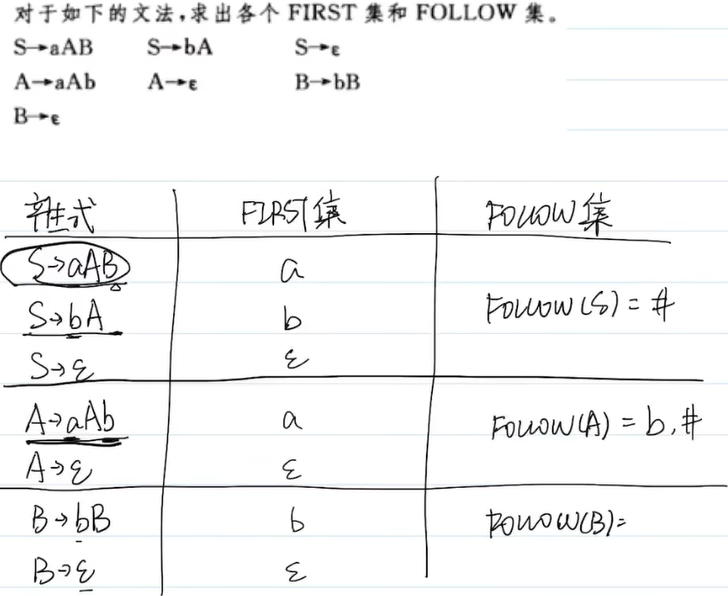 对于如下的文法,求出各个 FIRST 集和 FOLLOW 集。
S→aAB S→bA S→ε
A→aAb A→ε B→bB
B→ε
产生式 FIRST集 FOLLOW集
S→aAB a
FOLLOW(S) = #
S→bA b
S→ε ε
A→aAb a FOLLOW(A) = b,#
A→ε ε
B→bB b FOLLOW(B)=
B→ε ε